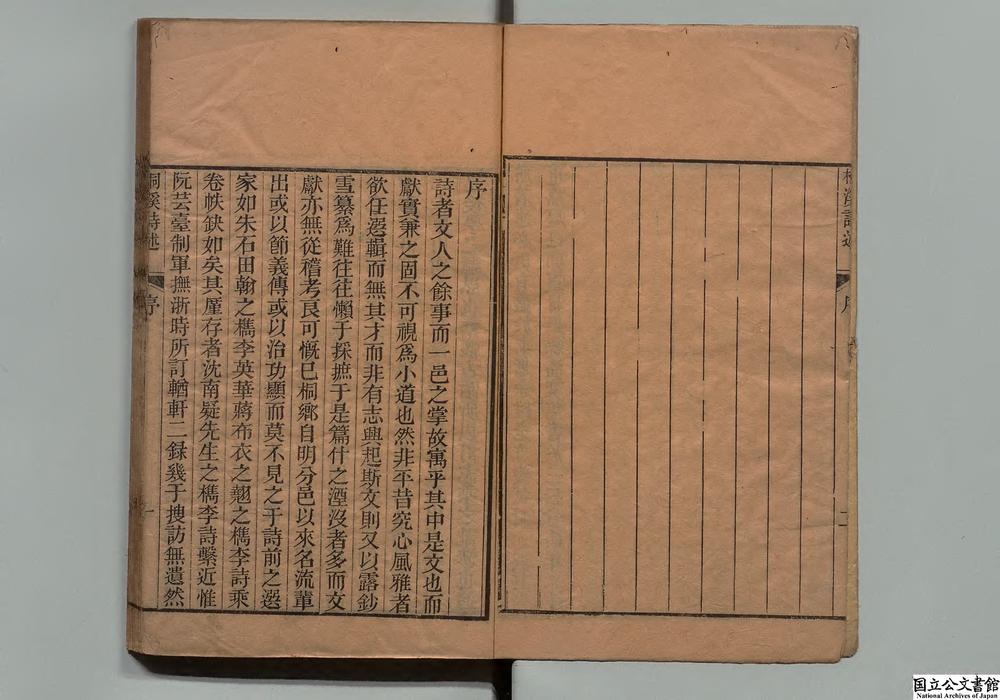 序
詩者文人之餘事而一邑之掌故寓乎其中是文也而
獻實兼之固不可視爲小道也然非平昔究心風雅者
欲任選輯而無其才而非有志興起斯文則又以露鈔
雪纂爲難往往懶于採摭于是篇什之湮沒者多而文
獻亦無從稽考良可慨已桐鄉自明分邑以來名流輩
出或以節義傳或以治功顯而莫不見之于詩前之選
家如朱石田翰之檇李英華蔣布衣之翹之檇李詩乘
卷帙缺如矣其厪存者沈南疑先生之檇李詩繫近惟
阮芸臺制軍撫浙時所訂輶軒二録幾于搜訪無遺然
桐溪詩述
序
一
二
国立公文書館
National Archives of Japan